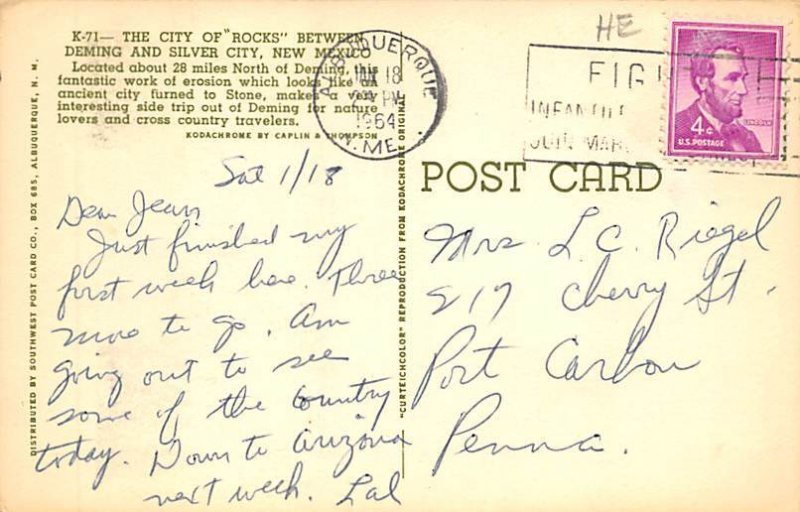 K-71— THE CITY OF "ROCKS" BETWEEN
DEMING AND SILVER CITY, NEW MEXICO
Located about 28 miles North of Deming, this
fantastic work of erosion which looks like an
ancient city furned to Stone, makes a very
interesting side trip out of Deming for nature
lovers and cross country travelers.
KODACHROME BY CAPLIN & THOMPSON
DISTRIBUTED BY SOUTHWEST POST CARD CO., BOX 685, ALBUQUERQUE, N. M.
"CURTEICHCOLOR" REPRODUCTION FROM KODACHROME ORIGINAL
ALBUQUERQUE
JAN 18
PM
1964
N. MEX.
HE
FIGHT
INFANTILE
JOIN MARCH
LINCOLN
4¢
U.S. POSTAGE
POST CARD
Sat 1/18
Dear Jean
Just finished my
first week here. Three
more to go. Am
going out to see
some of the country
today. Down to Arizona
next week. Lal
Mrs. L. C. Riegel
217 Cherry St.
Port Carbon
Penna.